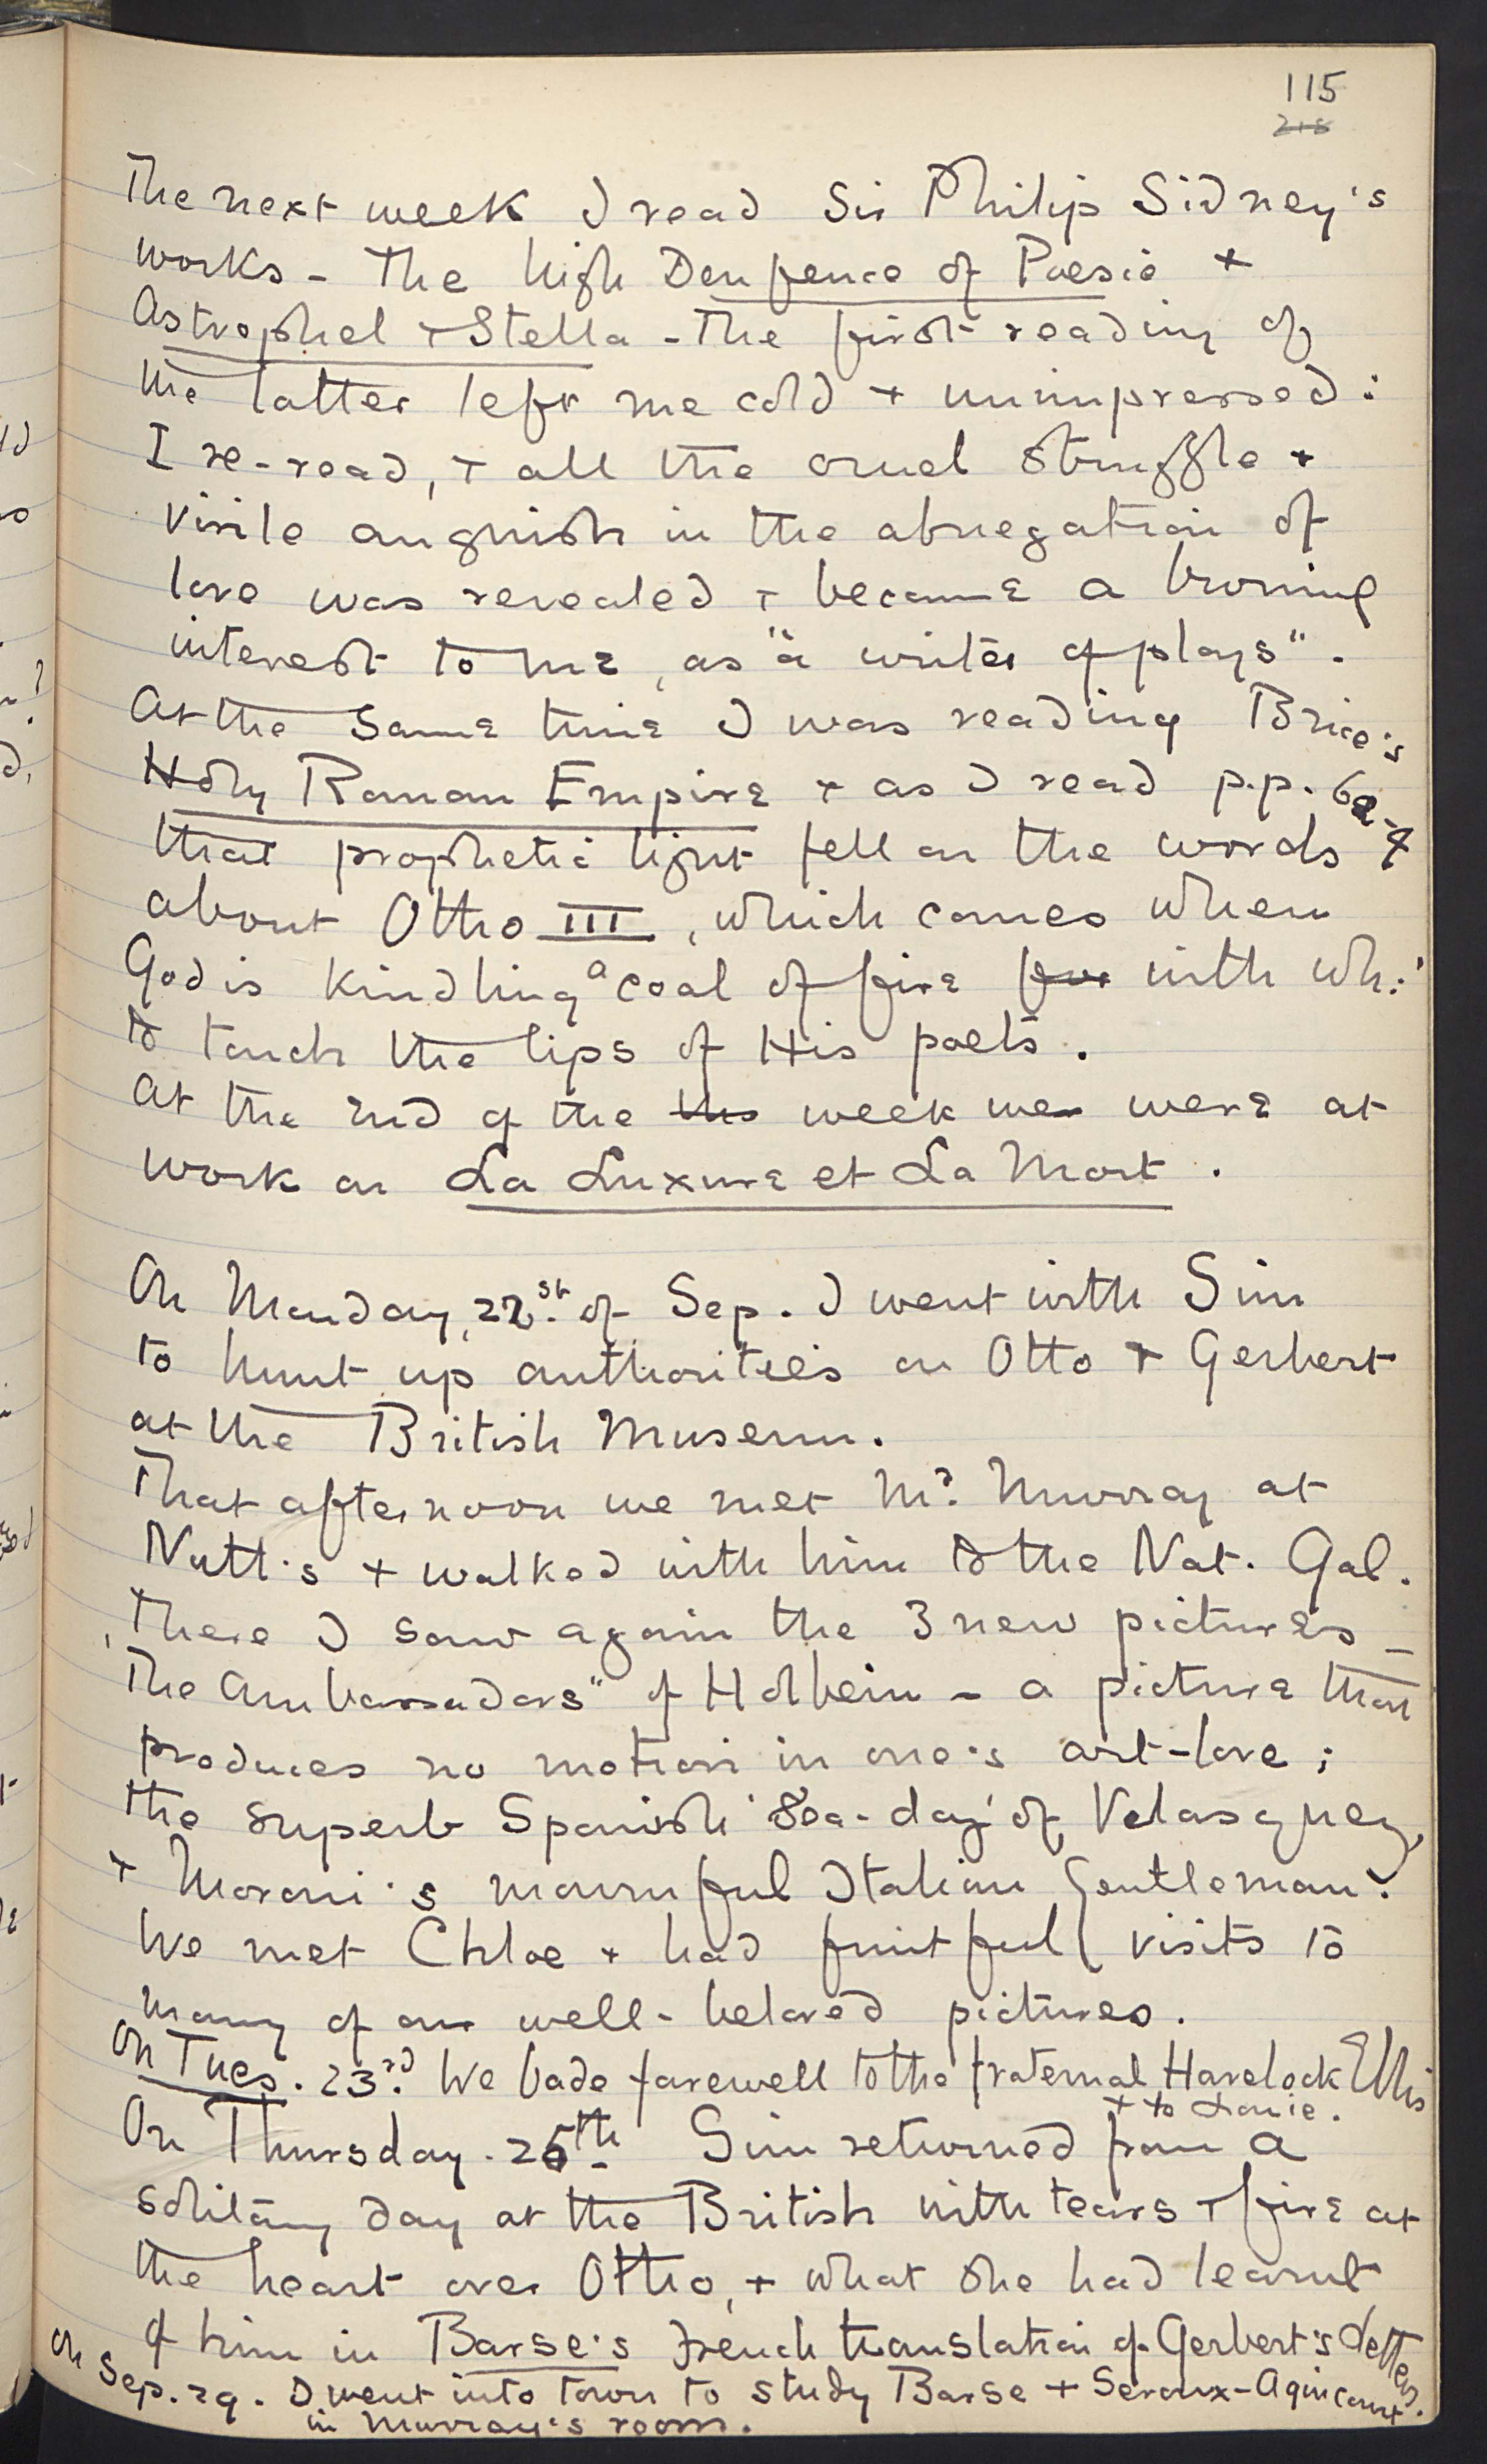 115
218
The next week I read Sir Philip Sidney's
works - The high Denfence of Poesie +
Astrophel + Stella - The first reading of
the latter left me cold + unimpressed:
I re-read, + all the cruel struggle +
virile anguish in the abnegation of
love was revealed + became a burning
interest to me, as "a writer of plays".
At the same time I was reading Brice's
Holy Roman Empire + as I read p.p. 62-4
that prophetic light fell on the words
about Otho III, which comes when
God is kindling a coal of fire for with wh:
to touch the lips of His poets.
At the end of the this week we were at
work on La Luxure et La Mort.
On Monday, 22st of Sep. I went with Sim
to hunt up authorities on Otto + Gerbert
at the British Museum.
That afternoon we met Mr. Murray at
Nutt's + walked with him to the Nat. Gal.
There I saw again the 3 new pictures -
"The Ambassadors" of Holbein - a picture that
produces no motion in one's art-love;
the superb Spanish 'Sea-dog' of Velasquez,
+ Moroni's mournful Italian Gentleman.
We met Chloe + had fruitful visits to
many of our well-beloved pictures.
On Tues. 23rd. We bade farewell to the fraternal Havelock Ellis
+ to Louie.
On Thursday. 25th Sim returned from a
solitary day at the British with tears + fire at
the heart over Otho, + what she had learnt
of him in Barse's French translation of Gerbert's Letters.
On Sep. 29. I went into town to study Barse + Seroux-Agincourt
in Murray's room.